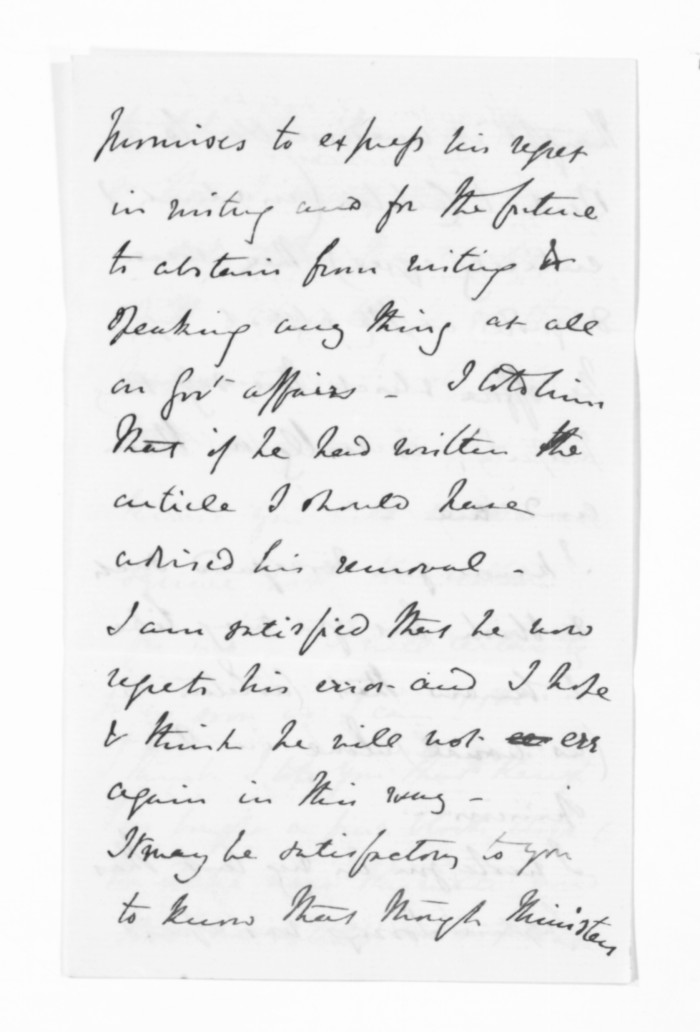 promises to express his regret
in writing and for the future
to abstain from writing &
speaking any thing at all
on Gov't affairs - I told him
that if he had written the
article I should have
advised his removal -
I am satisfied that he now
regrets his error and I hope
& think he will not err
again in this way -
It may be satisfactory to you
to know that though Ministers